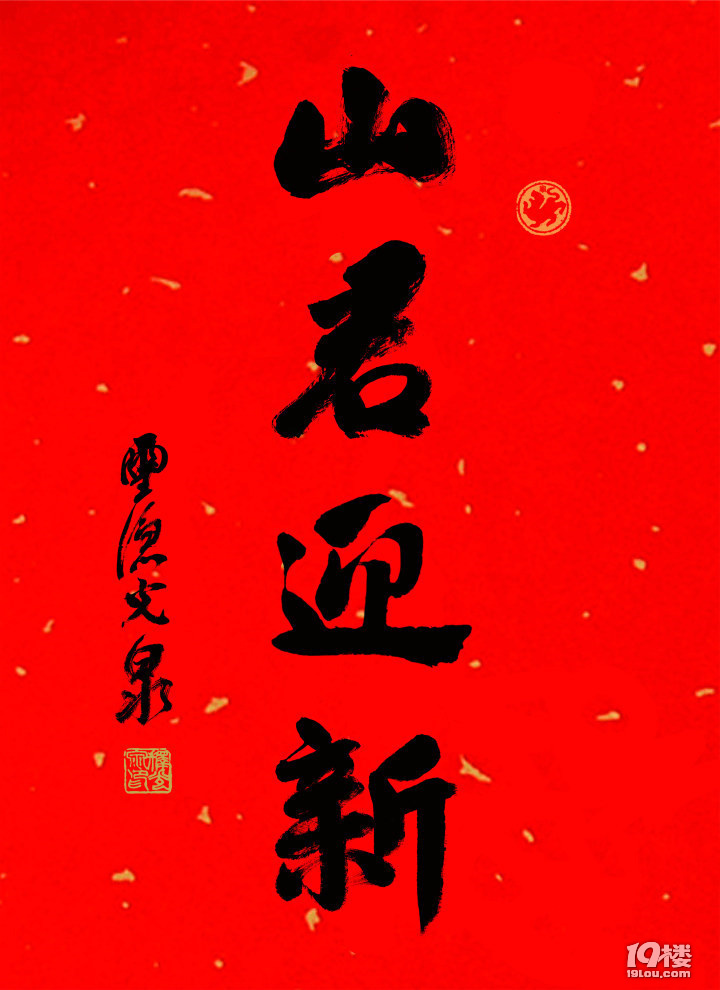 山君迎新
靈隱光泉
19楼
19lou.com